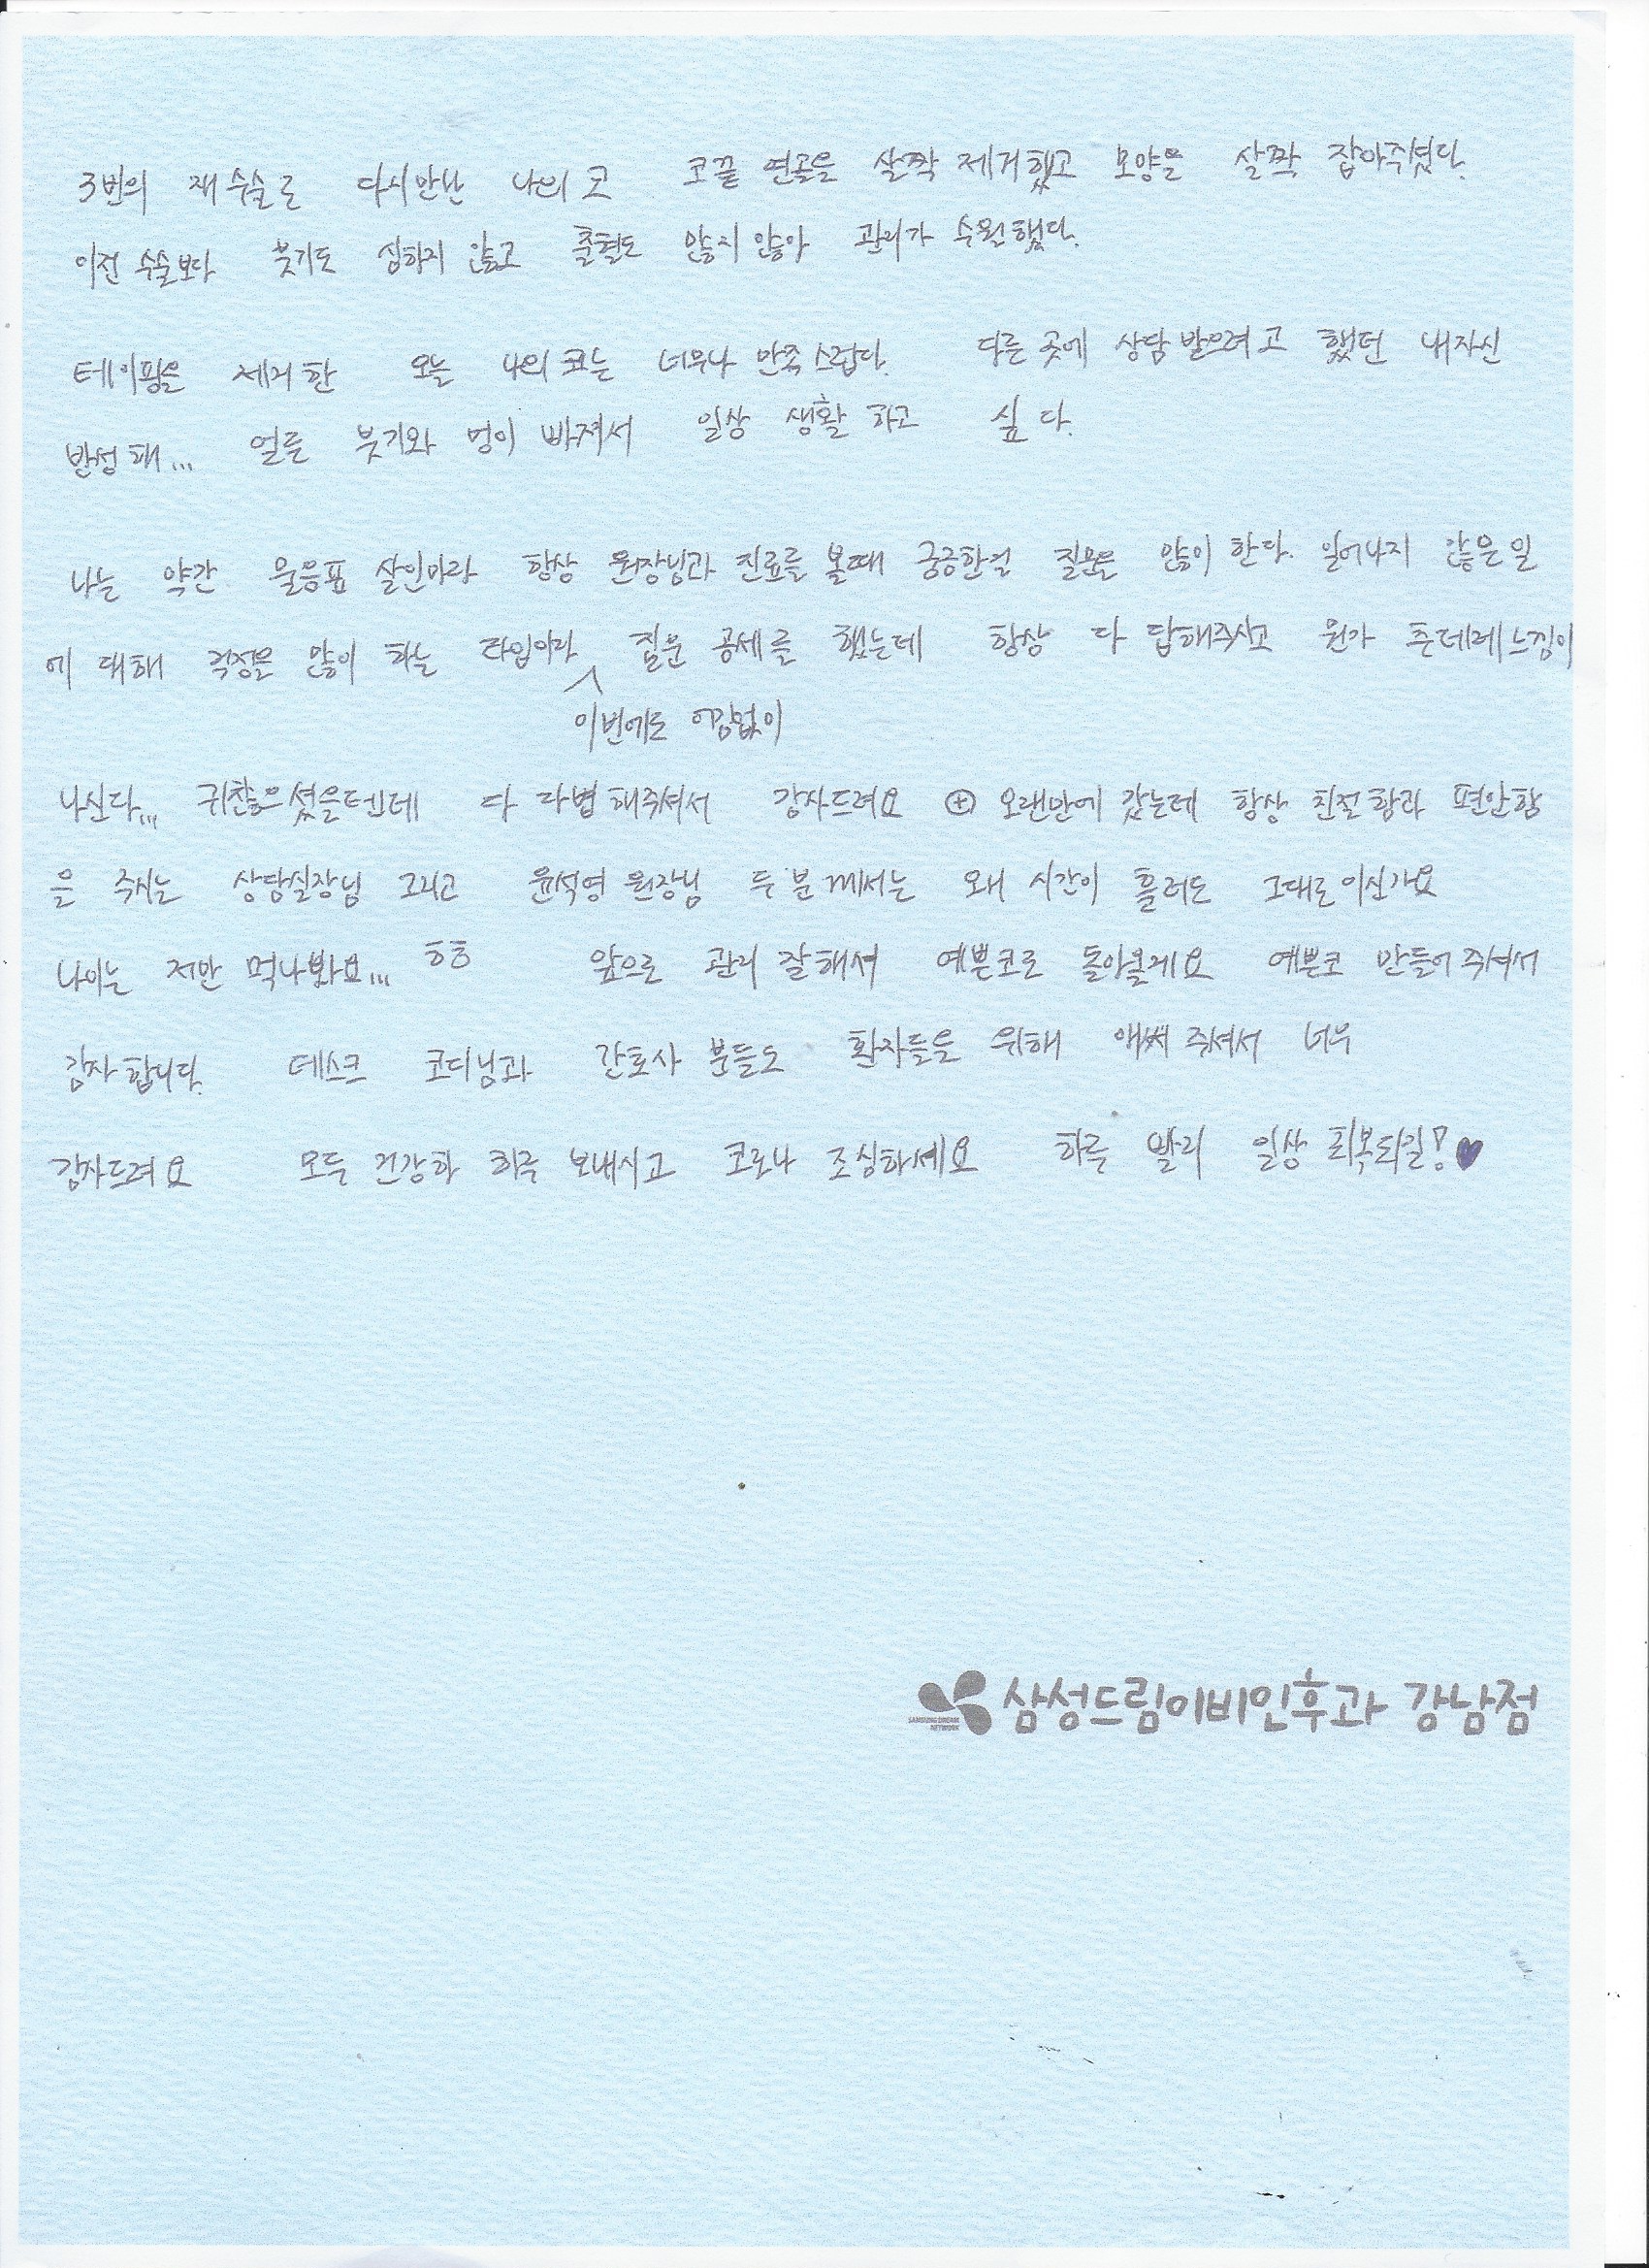 3번의 재수술로 다시만난 나의 코 코끝 연골을 살짝 제거했고 모양을 살짝 잡아주셨다.
이전 수술보다 붓기도 심하지 않고 출혈도 많지 않아 관리가 수월했다.
테이핑을 제거한 오늘 나의 코는 너무나 만족스럽다. 다른 곳에 상담 받으려고 했던 내자신
반성해... 얼른 붓기와 멍이 빠져서 일상 생활 하고 싶다.
나는 약간 물음표 살인마라 항상 원장님과 진료를 볼때 궁금한걸 질문을 많이 한다. 일어나지 않은 일
에 대해 걱정을 많이 하는 타입이라 질문 공세를 했는데 항상 다 답해주시고 뭔가 츤데레 느낌이
이번에도 어김없이
나신다... 귀찮으셨을텐데 다 답변해주셔서 감사드려요 ⊕ 오랜만에 갔는데 항상 친절함과 편안함
을 주시는 상담실장님 그리고 윤석영 원장님 두 분께서는 왜 시간이 흘러도 그대로이신가요
나이는 저만 먹나봐요... ㅎㅎ 앞으로 관리 잘해서 예쁜코로 돌아올게요 예쁜코 만들어주셔서
감사합니다. 데스크 코디님과 간호사 분들도 환자들을 위해 애써 주셔서 너무
감사드려요 모두 건강한 하루 보내시고 코로나 조심하세요 하루 빨리 일상 회복되길!♥
삼성드림이비인후과 강남점